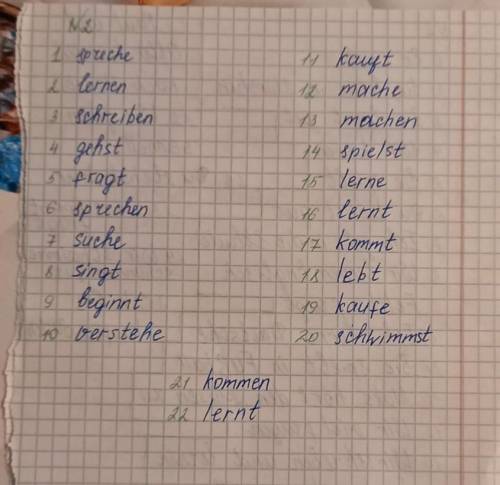 №2
1 spreche
2 lernen
3 schreiben
4 gehst
5 fragt
6 sprechen
7 suche
8 singt
9 beginnt
10 verstehe
11 kauft
12 mache
13 machen
14 spielst
15 lerne
16 lernt
17 kommt
18 lebt
19 kaufe
20 schwimmst
21 kommen
22 lernt